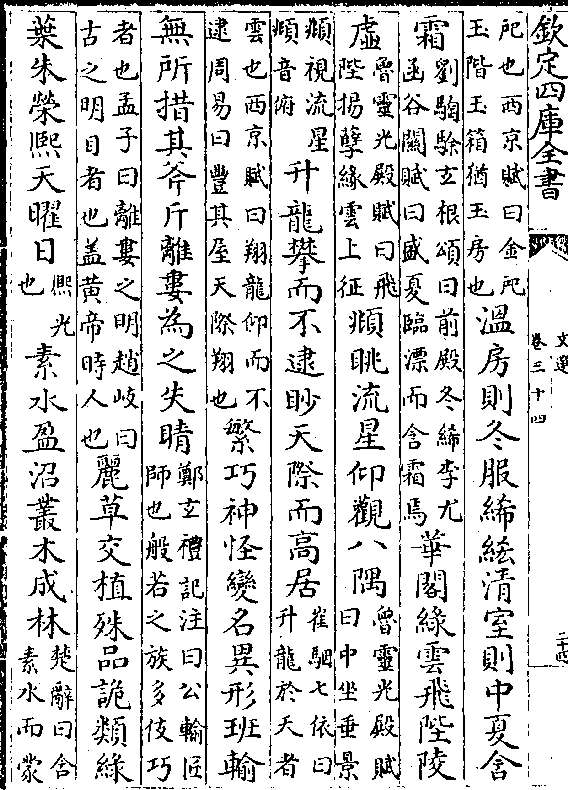 欽定四庫全書
文選
卷三十四
二十四
戺也西京賦曰金戺
玉階玉箱猶玉房也
溫房則冬服絺綌清室則中夏含
霜
劉騊駼玄根頌曰前殿冬絺李尤
函谷關賦曰盛夏臨漂而含霜焉
華閣緣雲飛陛陵
虛
魯靈光殿賦曰飛
陛揚孽緣雲上征
頫眺流星仰觀八隅
魯靈光殿賦
曰中坐垂景
頫視流星
頫音俯
升龍攀而不逮眇天際而高居
崔駰七依曰
升龍於天者
雲也西京賦曰翔龍仰而不
逮周易曰豐其屋天際翔也
繁巧神怪變名異形班輸
無所措其斧斤離婁為之失睛
鄭玄禮記注曰公輸匠
師也般若之族多伎巧
者也孟子曰離婁之明趙岐曰
古之明目者也盖黄帝時人也
麗草交植殊品詭類緑
葉朱榮熙天曜日
熙光
也
素水盈沼叢木成林
楚辭曰含
素水而蒙